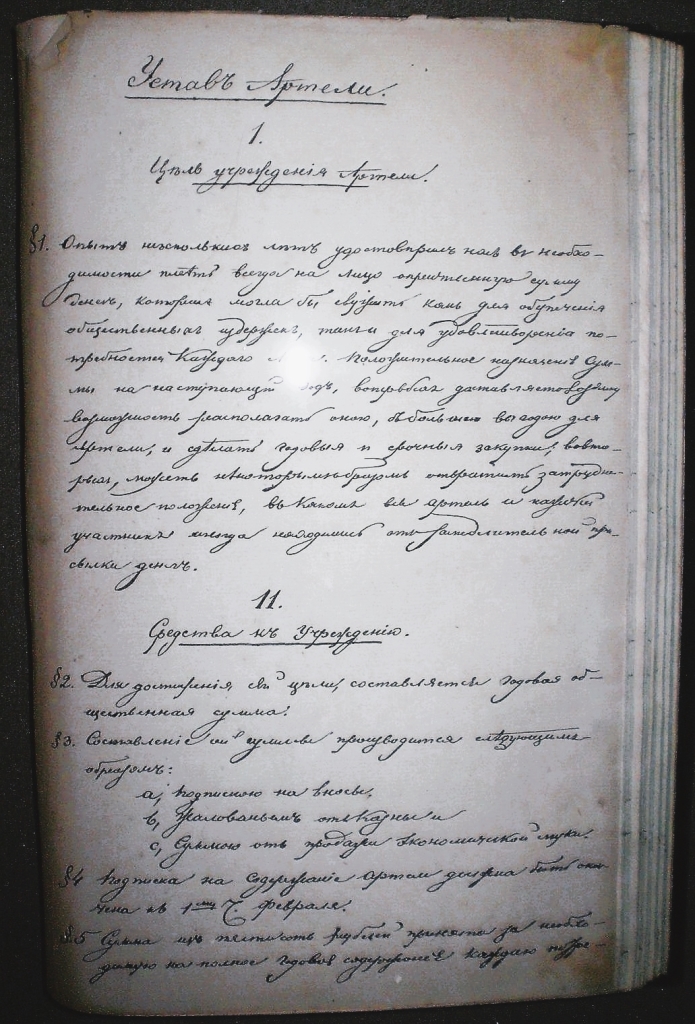 Уставъ Артели.
1.
Цѣль учрежденія Артели.
§1. Опытъ нѣсколькихъ лѣтъ удостовѣрилъ насъ въ необхо-
димости имѣть всегда на лицо опредѣленную сумму
денегъ, которая могла бы служить какъ для
общественныхъ издержекъ, такъ и для удовлетворенія по-
требностей каждаго Положительное назначеніе сум-
мы на наступающій годъ, вопервыхъ доставляетъ
возможность располагать оною, съ большею выгодою для
Артели, и сдѣлать годовыя и срочныя закупки; вовто-
рыхъ, можетъ нѣкоторымъ образомъ отвратить затрудни-
тельное положеніе, въ какомъ вся артель и каждый
участникъ иногда находились отъ при-
сылки денегъ.
11.
Средства къ Учрежденію.
§2. Для достиженія сей цѣли, составляется годовая об-
щественная сумма.
§3. Составленіе сей суммы производится слѣдующимъ
образомъ:
а, подпискою на вносы,
в, Жалованьемъ отъ Казны и
с, Суммою отъ продажи экономической муки.
§4 Подписка на содержаніе артели должна быть окон-
чена къ 1му ч. февраля.
§5 Сумма изъ пятисотъ рублей принята за необхо-
димую на полное годовое содержаніе каждаго